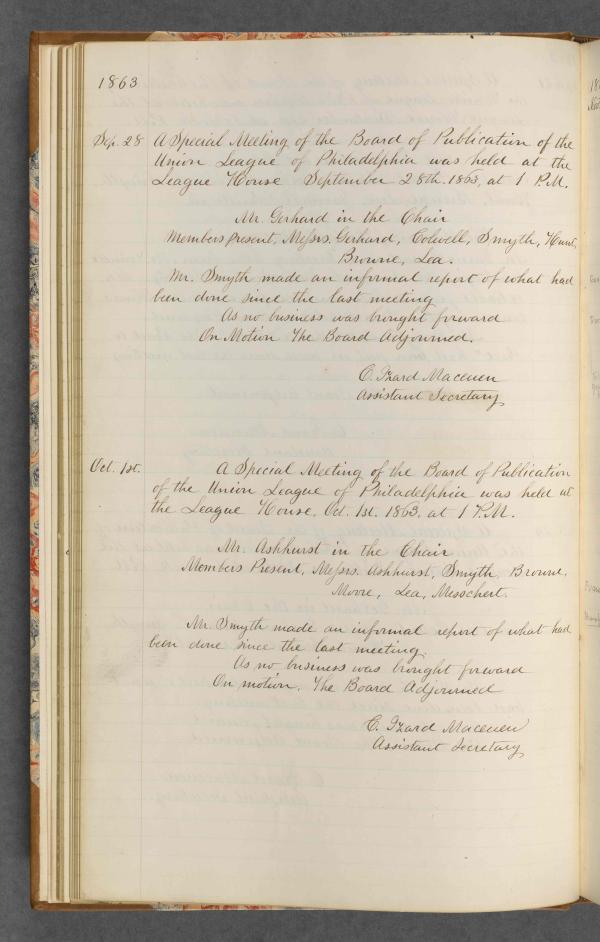 1863
Sep. 28 A Special Meeting of the Board of Publication of the
Union League of Philadelphia was held at the
League House September 28th. 1863, at 1 P.M.
Mr. Gerhard in the Chair
Members present, Messrs. Gerhard, Colwell, Smyth, Hunt,
Browne, Lea.
Mr. Smyth made an informal report of what had
been done since the last meeting
As no business was brought forward
On Motion The Board Adjourned.
C. Izard Maceuen
Assistant Secretary
Oct. 1st. A Special Meeting of the Board of Publication
of the Union League of Philadelphia was held at
the League House, Oct. 1st. 1863. at 1 P.M.
Mr. Ashhurst in the Chair
Members Present, Messrs. Ashhurst, Smyth, Browne,
Moore, Lea, Messchert.
Mr. Smyth made an informal report of what had
been done since the last meeting.
As no business was brought forward
On motion. The Board Adjourned
C. Izard Maceuen
Assistant Secretary